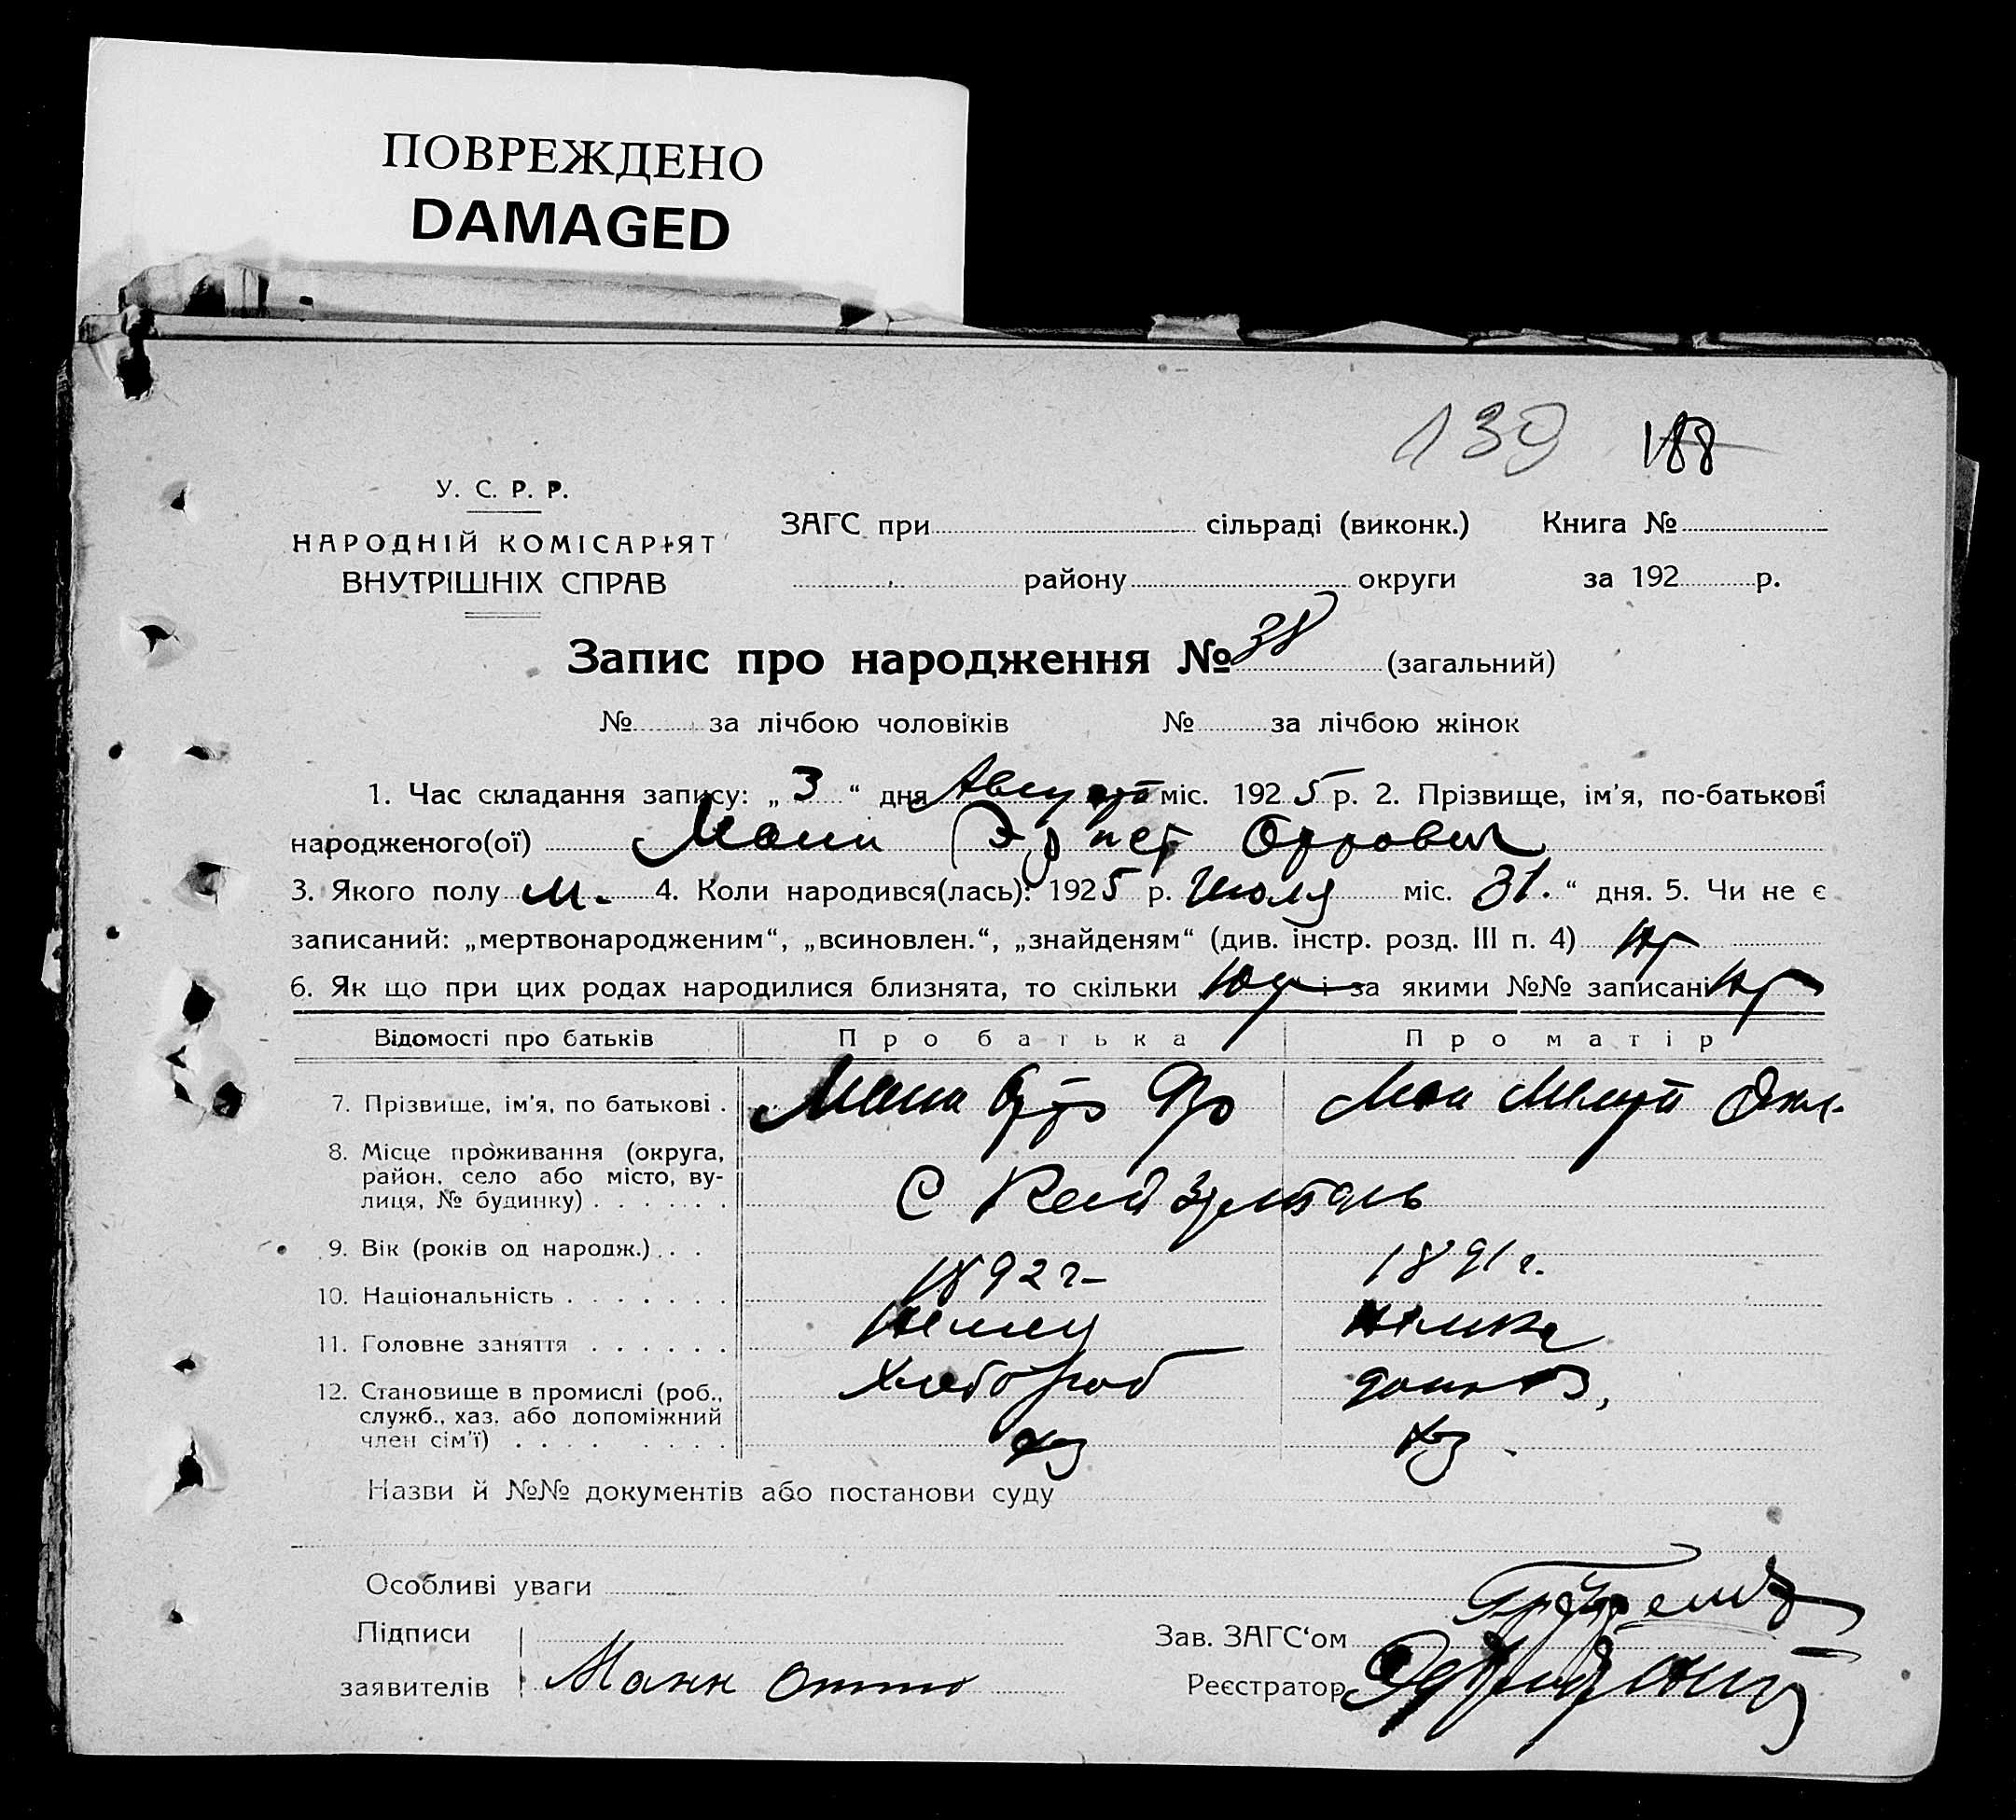 ПОВРЕЖДЕНО
DAMAGED
139 188
У. С. Р. Р.
НАРОДНІЙ КОМІСАРІЯТ
ВНУТРІШНІХ СПРАВ
ЗАГС при сільраді (виконк.) Книга №
району округи за 192 р.
Запис про народження № 38 (загальний)
№ за лічбою чоловіків № за лічбою жінок
1. Час складання запису: „ 3 “ дня Августа міс. 1925 р. 2. Прізвище, ім'я, по-батькові
народженого(ої) Манн Эрнст Оттович
3. Якого полу м. 4. Коли народився(лась): 1925 р. Июля міс. 31. “ дня. 5. Чи не є
записаний: „мертвонародженим“, „всиновлен.“, „знайденям“ (див. інстр. розд. III п. 4)
6. Як що при цих родах народилися близнята, то скільки і за якими №№ записані
Відомості про батьків Про батька Про матір
7. Прізвище, ім'я, по батькові . Манн Отто
8. Місце проживання (округа,
район, село або місто, ву-
лиця, № будинку) . . . . . . С
9. Вік (років од народж.) . . . 1892 г. 1891 г.
10. Національність . . . . . . . Немец Немка
11. Головне заняття . . . . . . Хлебороб
12. Становище в промислі (роб.,
служб., хаз. або допоміжний
член сім'ї) . . . . . . . . хз хз
Назви й №№ документів або постанови суду
Особливі уваги
Підписи
заявителів Манн Отто
Зав. ЗАГС‘ом
Реєстратор